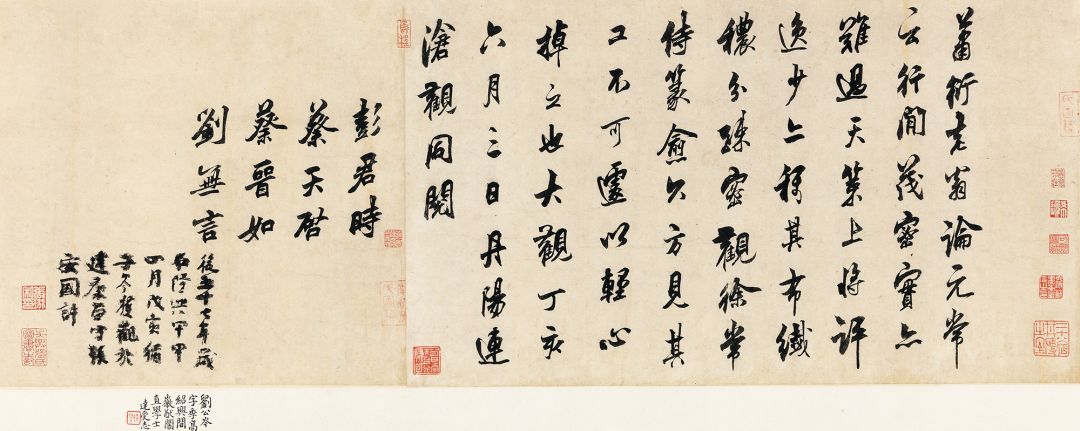 蕭衍老翁論元常
云行間茂密實亦
難過天策上將評
逸少亦稱其布纖
穠分疎密觀徐常
侍篆愈久方見其
工不可遽以輕心
掉之也大觀丁亥
六月三日丹陽連
滄觀同閱
彭君時
蔡天啓
蔡晉如
劉無言
後五十七年歲
在隆興甲申
四月戊寅
獲觀於
建康留守張
安國許
劉公岑
字季高
紹興間
徽猷閣
直學士
達受志